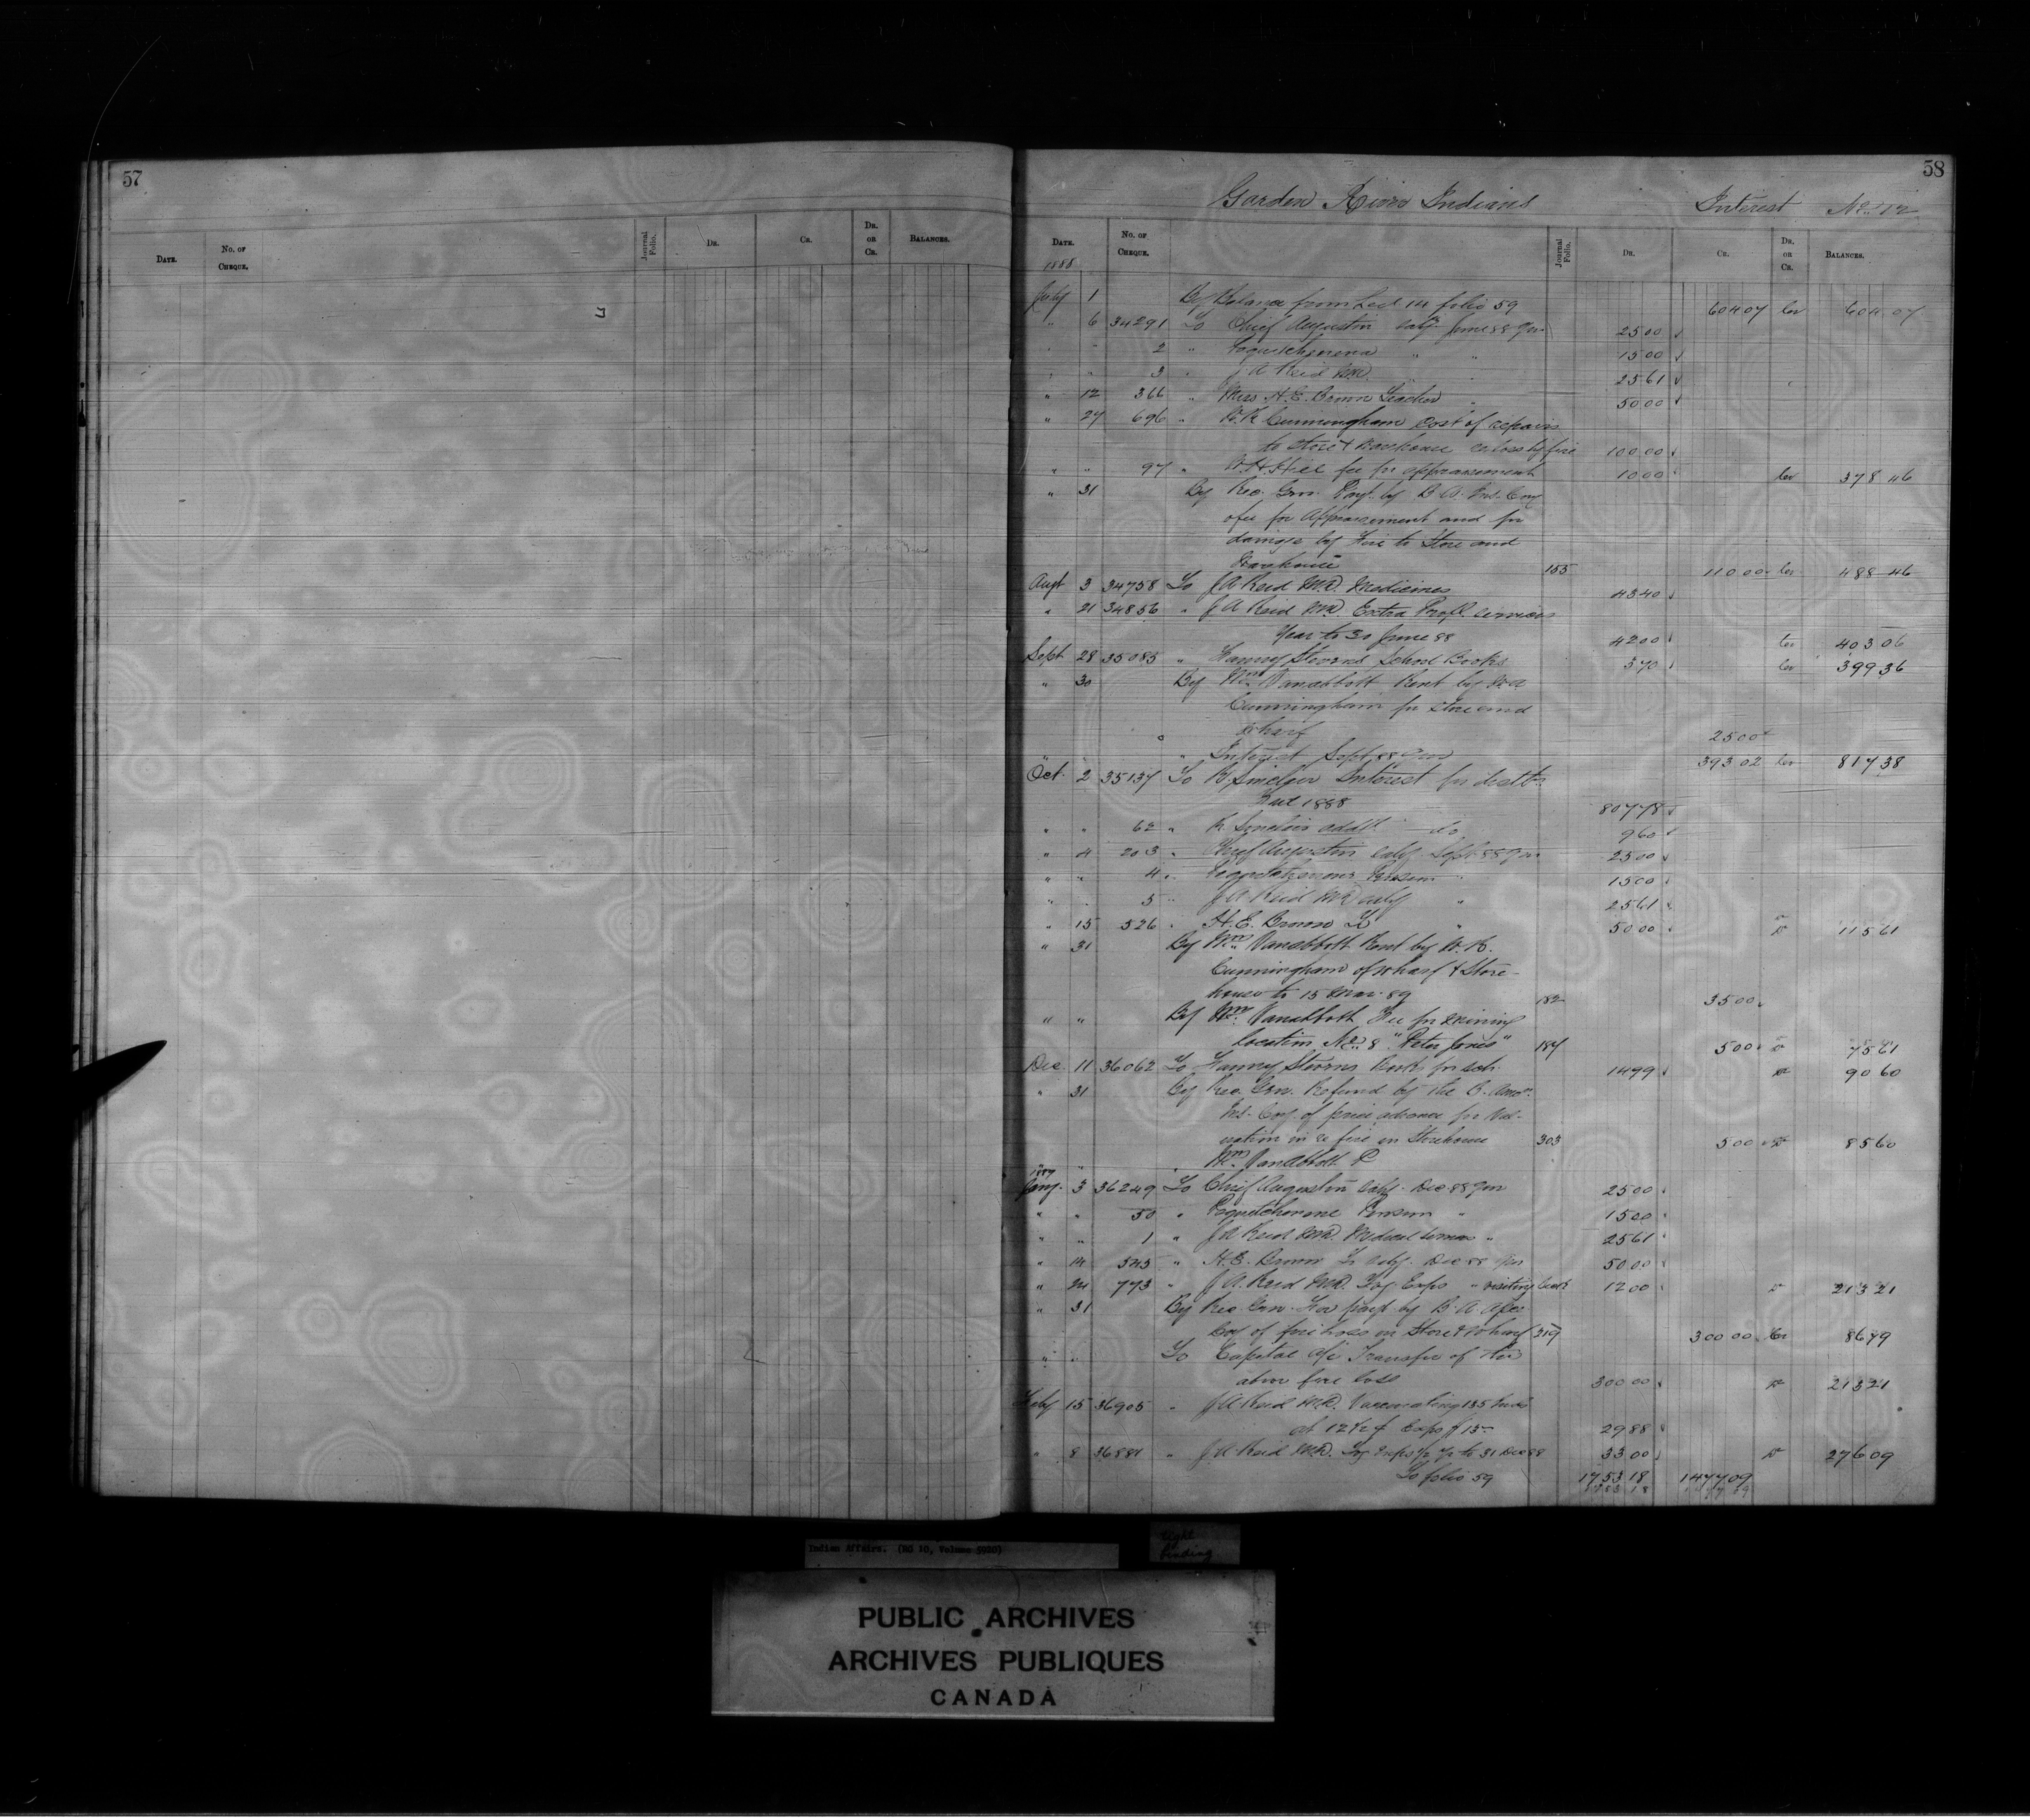 57
Date.
No. of Cheque.
Journal Folio.
Dr.
Cr.
Dr. or Cr.
Balances.
58
Garden River Indians Interest No. 112
Date. No. of Cheque. Journal Folio. Dr. Cr. Dr. or Cr. Balances.
1888
July 1 By Balance from Led 14 folio 59 604 07 Cr 604 07
" 6 34291 To Chief Augustin Saly June 88 Qr 25 00
" " 2 " " " 15 00
" " 3 " J A Reid MD 25 61
" 12 366 " Miss H. E. Brown Teacher " 50 00
" 27 696 " Cunningham Cost of repairs
to store & Warehouse loss by fire 100 00
" " 97 " fee for appraisement 10 00 Cr 378 46
" 31 By Rec. Gen. Payt. by B A. Ins. Coy
of fee for Appraisement and for
damage by Fire to Store and
Warehouse 155 110 00 Cr 488 46
Augt 3 34758 To J A Reid M.D. Medicines 43 40
" 21 34856 " J A Reid MD Extra Profl. services
Year to 30 June 88 42 00 Cr 403 06
Sept 28 35085 " Fanny Stevens School Books 3 70 Cr 399 36
" 30 By Wm Vanabbott Rent by
Cunningham for store and
Wharf 25 00
" " Interest Sept. 88 Qr 393 02 Cr 817 38
Oct. 2 35137 To Interest for distbn.
1888 807 78
" " 62 " addl do 9 60
" 4 203 " Chief Augustin Saly. Sept 88 Qr 25 00
" " 4 " Pension " 15 00
" " 5 " J A Reid MD saly " 25 61
" 15 526 " H. E. Brown " 50 00 Dr 115 61
" 31 By Wm Vanabbott Rent by
Cunningham of Wharf & Store-
house to 15 Mar. 89 182 35 00
" " By Wm. Vanabbott Fee for Mining
Location No. 8 "Peter Jones" 187 5 00 Dr 75 61
Dec. 11 36062 To Fanny Stevens Books for sch. 14 99 Dr 90 60
" 31 By Rec. Gen. Refund by the B. Amer.
Ins. Coy. of advance for Val-
uation in re fire on Storehouse 303 5 00 Dr 85 60
" " Wm. Vanabbott
1889
Jany. 3 36249 To Chief Augustin Saly. Dec 88 Qr 25 00
" " 50 " Pension " 15 00
" " 1 " J A Reid MD. Medical services " 25 61
" 14 545 " H. E. Brown saly. Dec 88 Qr 50 00
" 24 773 " J. A. Reid MD. Exps " visiting 12 00 Dr 213 21
" 31 By Rec. Gen. payt by B. A.
Coy of fire loss on Store & Wharf 319 300 00 Cr 86 79
" " To Capital a/c Transfer of the
above fire loss 300 00 Dr 213 21
Feby 15 36905 " J A Reid MD. Vaccinating 135 Inds
at 12 1/2 ¢ Exps $ 13 29 88
" 8 36881 " J. A. Reid MD. Exps to 31 Dec 88 33 00 Dr 276 09
To folio 59 1753 18 1477 09
1753 18 1477 09
Indian Affairs. (RG 10, Volume 5920)
Tight
Binding
PUBLIC ARCHIVES
ARCHIVES PUBLIQUES
CANADA